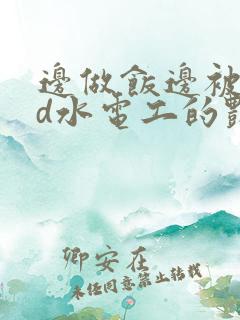 邊做飯邊被
d水電工的
卿安在
未经同意禁止转载